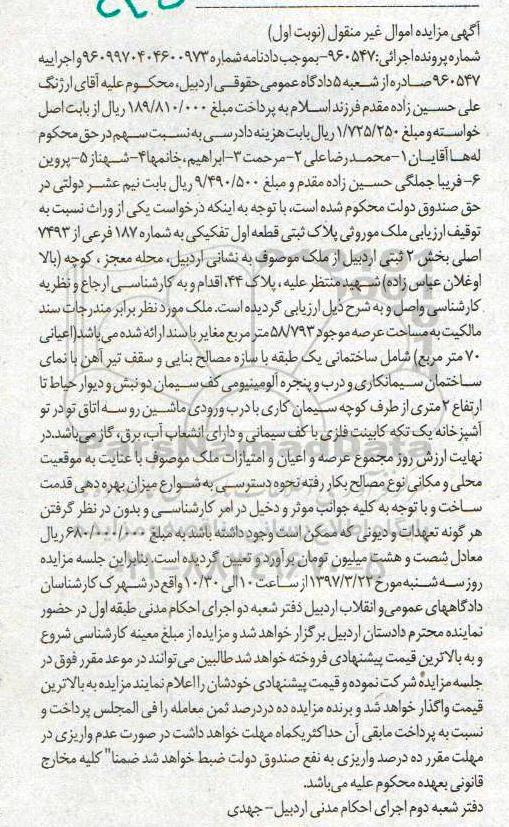 آگهی مزایده اموال غیر منقول (نوبت اول)
شماره پرونده اجرائی: ۹۶۰۵۴۷- بموجب دادنامه شماره ۹۶۰۹۹۷۰۴۰۴۶۰۰۹۷۳ و اجراییه
۹۶۰۵۴۷ صادره از شعبه ۵ دادگاه عمومی حقوقی اردبیل، محکوم علیه آقای ارژنگ
علی حسین زاده مقدم فرزند اسلام به پرداخت مبلغ ۱۸۹/۸۱۰/۰۰۰ ریال از بابت اصل
خواسته و مبلغ ۱/۷۲۵/۲۵۰ ریال بابت هزینه دادرسی به نسبت سهم در حق محکوم
لهما آقایان ۱- محمدرضا علی ۲- مرحمت ۳- ابراهیم، خانمها ۴- شهناز ۵- پروین
۶- فریبا جملگی حسین زاده مقدم و مبلغ ۹/۴۹۰/۵۰۰ ریال بابت نیم عشر دولتی در
حق صندوق دولت محکوم شده است، با توجه به اینکه درخواست یکی از وراث نسبت به
توقیف ارزیابی ملک موروثی پلاک ثبتی قطعه اول تفکیکی به شماره ۱۸۷ فرعی از ۷۴۹۳
اصلی بخش ۲ ثبتی اردبیل از ملک موصوف به نشانی اردبیل، محله معجز، کوچه (بالا
اوغلان عباس زاده) شهید منتظر علیه، پلاک ۴۴، اقدام و به کارشناسی ارجاع و نظریه
کارشناسی واصل و به شرح ذیل ارزیابی گردیده است. ملک مورد نظر برابر مندرجات سند
مالکیت به مساحت عرصه موجود ۵۸/۷۹۳ متر مربع مغایر با سند ارائه شده می باشد (اعیانی
۷۰ متر مربع) شامل ساختمانی یک طبقه با سازه مصالح بنایی و سقف تیر آهن با نمای
ساختمان سیمانکاری و درب و پنجره آلومینیومی کف سیمان دو نبش و دیوار حیاط تا
ارتفاع ۲ متری از طرف کوچه سیمان کاری با درب ورودی ماشین رو سه اتاق تو در تو
آشپزخانه یک تکه کابینت فلزی با کف سیمانی و دارای انشعاب آب، برق، گاز می باشد. در
نهایت ارزش روز مجموع عرصه و اعیان و امتیازات ملک موصوف با عنایت به موقعیت
محلی و مکانی نوع مصالح بکار رفته نحوه دسترسی به شوارع میزان بهره دهی قدمت
ساخت و با توجه به کلیه جوانب موثر و دخیل در امر کارشناسی و بدون در نظر گرفتن
هر گونه تعهدات و دیونی که ممکن است وجود داشته باشد به مبلغ ۶۸۰/۰۰۰/۰۰۰ ریال
معادل شصت و هشت میلیون تومان برآورد و تعیین گردیده است. بنابراین جلسه مزایده
روز سه شنبه مورخ ۱۳۹۷/۳/۲۲ از ساعت ۱۰ الی ۱۰/۳۰ واقع در شهرک کارشناسان
دادگاههای عمومی و انقلاب اردبیل دفتر شعبه دو اجرای احکام مدنی طبقه اول در حضور
نماینده محترم دادستان اردبیل برگزار خواهد شد و مزایده از مبلغ معینه کارشناسی شروع
و به بالاترین قیمت پیشنهادی فروخته خواهد شد طالبین می توانند در موعد مقرر فوق در
جلسه مزایده شرکت نموده و قیمت پیشنهادی خودشان را اعلام نمایند مزایده به بالاترین
قیمت واگذار خواهد شد و برنده مزایده ده درصد ثمن معامله را فی المجلس پرداخت و
نسبت به پرداخت مابقی آن حداکثر یکماه مهلت خواهد داشت در صورت عدم واریزی در
مهلت مقرر ده درصد واریزی به نفع صندوق دولت ضبط خواهد شد ضمنا" کلیه مخارج
قانونی بعهده محکوم علیه می باشد.
دفتر شعبه دوم اجرای احکام مدنی اردبیل- جهدی